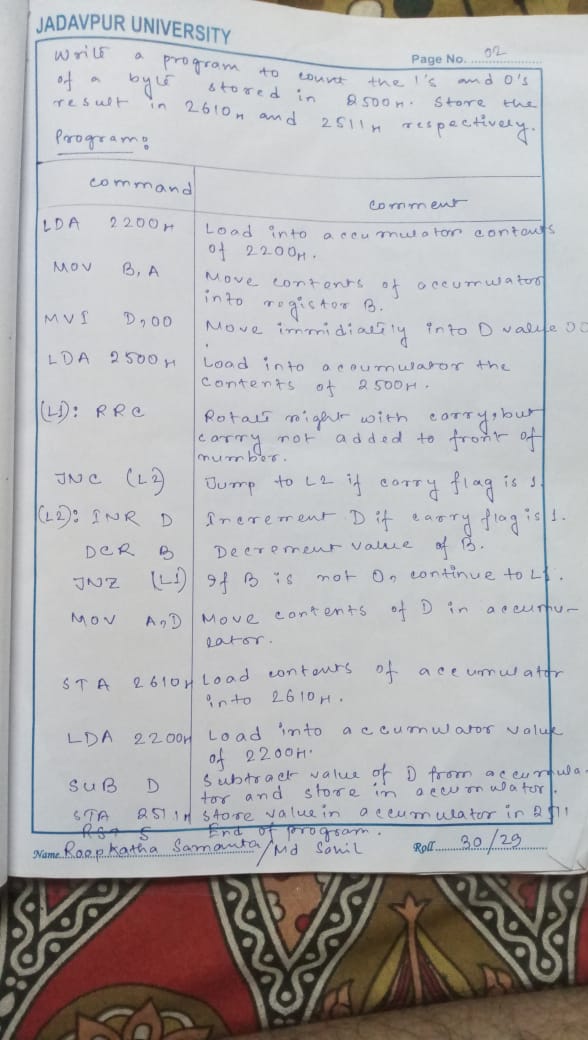 JADAVPUR UNIVERSITY
Page No. 02
Write a program to count the 1's and 0's
of a byte stored in 2500H. Store the
result in 2610H and 2511H respectively.
Program:
command comment
LDA 2200H Load into accumulator contents
of 2200H.
MOV B, A Move contents of accumulator
into register B.
MVI D,00 Move immidiately into D value 00
LDA 2500H Load into accumulator the
contents of 2500H.
(L1): RRC Rotate right with carry, but
carry not added to front of
number.
JNC (L2) Jump to L2 if carry flag is 1.
(L2): INR D Increment D if carry flag is 1.
DCR B Decrement value of B.
JNZ (L1) If B is not 0, continue to L1.
MOV A,D Move contents of D in accumu-
lator.
STA 2610H Load contents of accumulator
into 2610H.
LDA 2200H Load into accumulator value
of 2200H.
SUB D Subtract value of D from accumula-
tor and store in accumulator.
STA 2511H store value in accumulator in 2511
RST 5 End of program.
Name Roopkatha Samanta/Md Sahil Roll 30/29